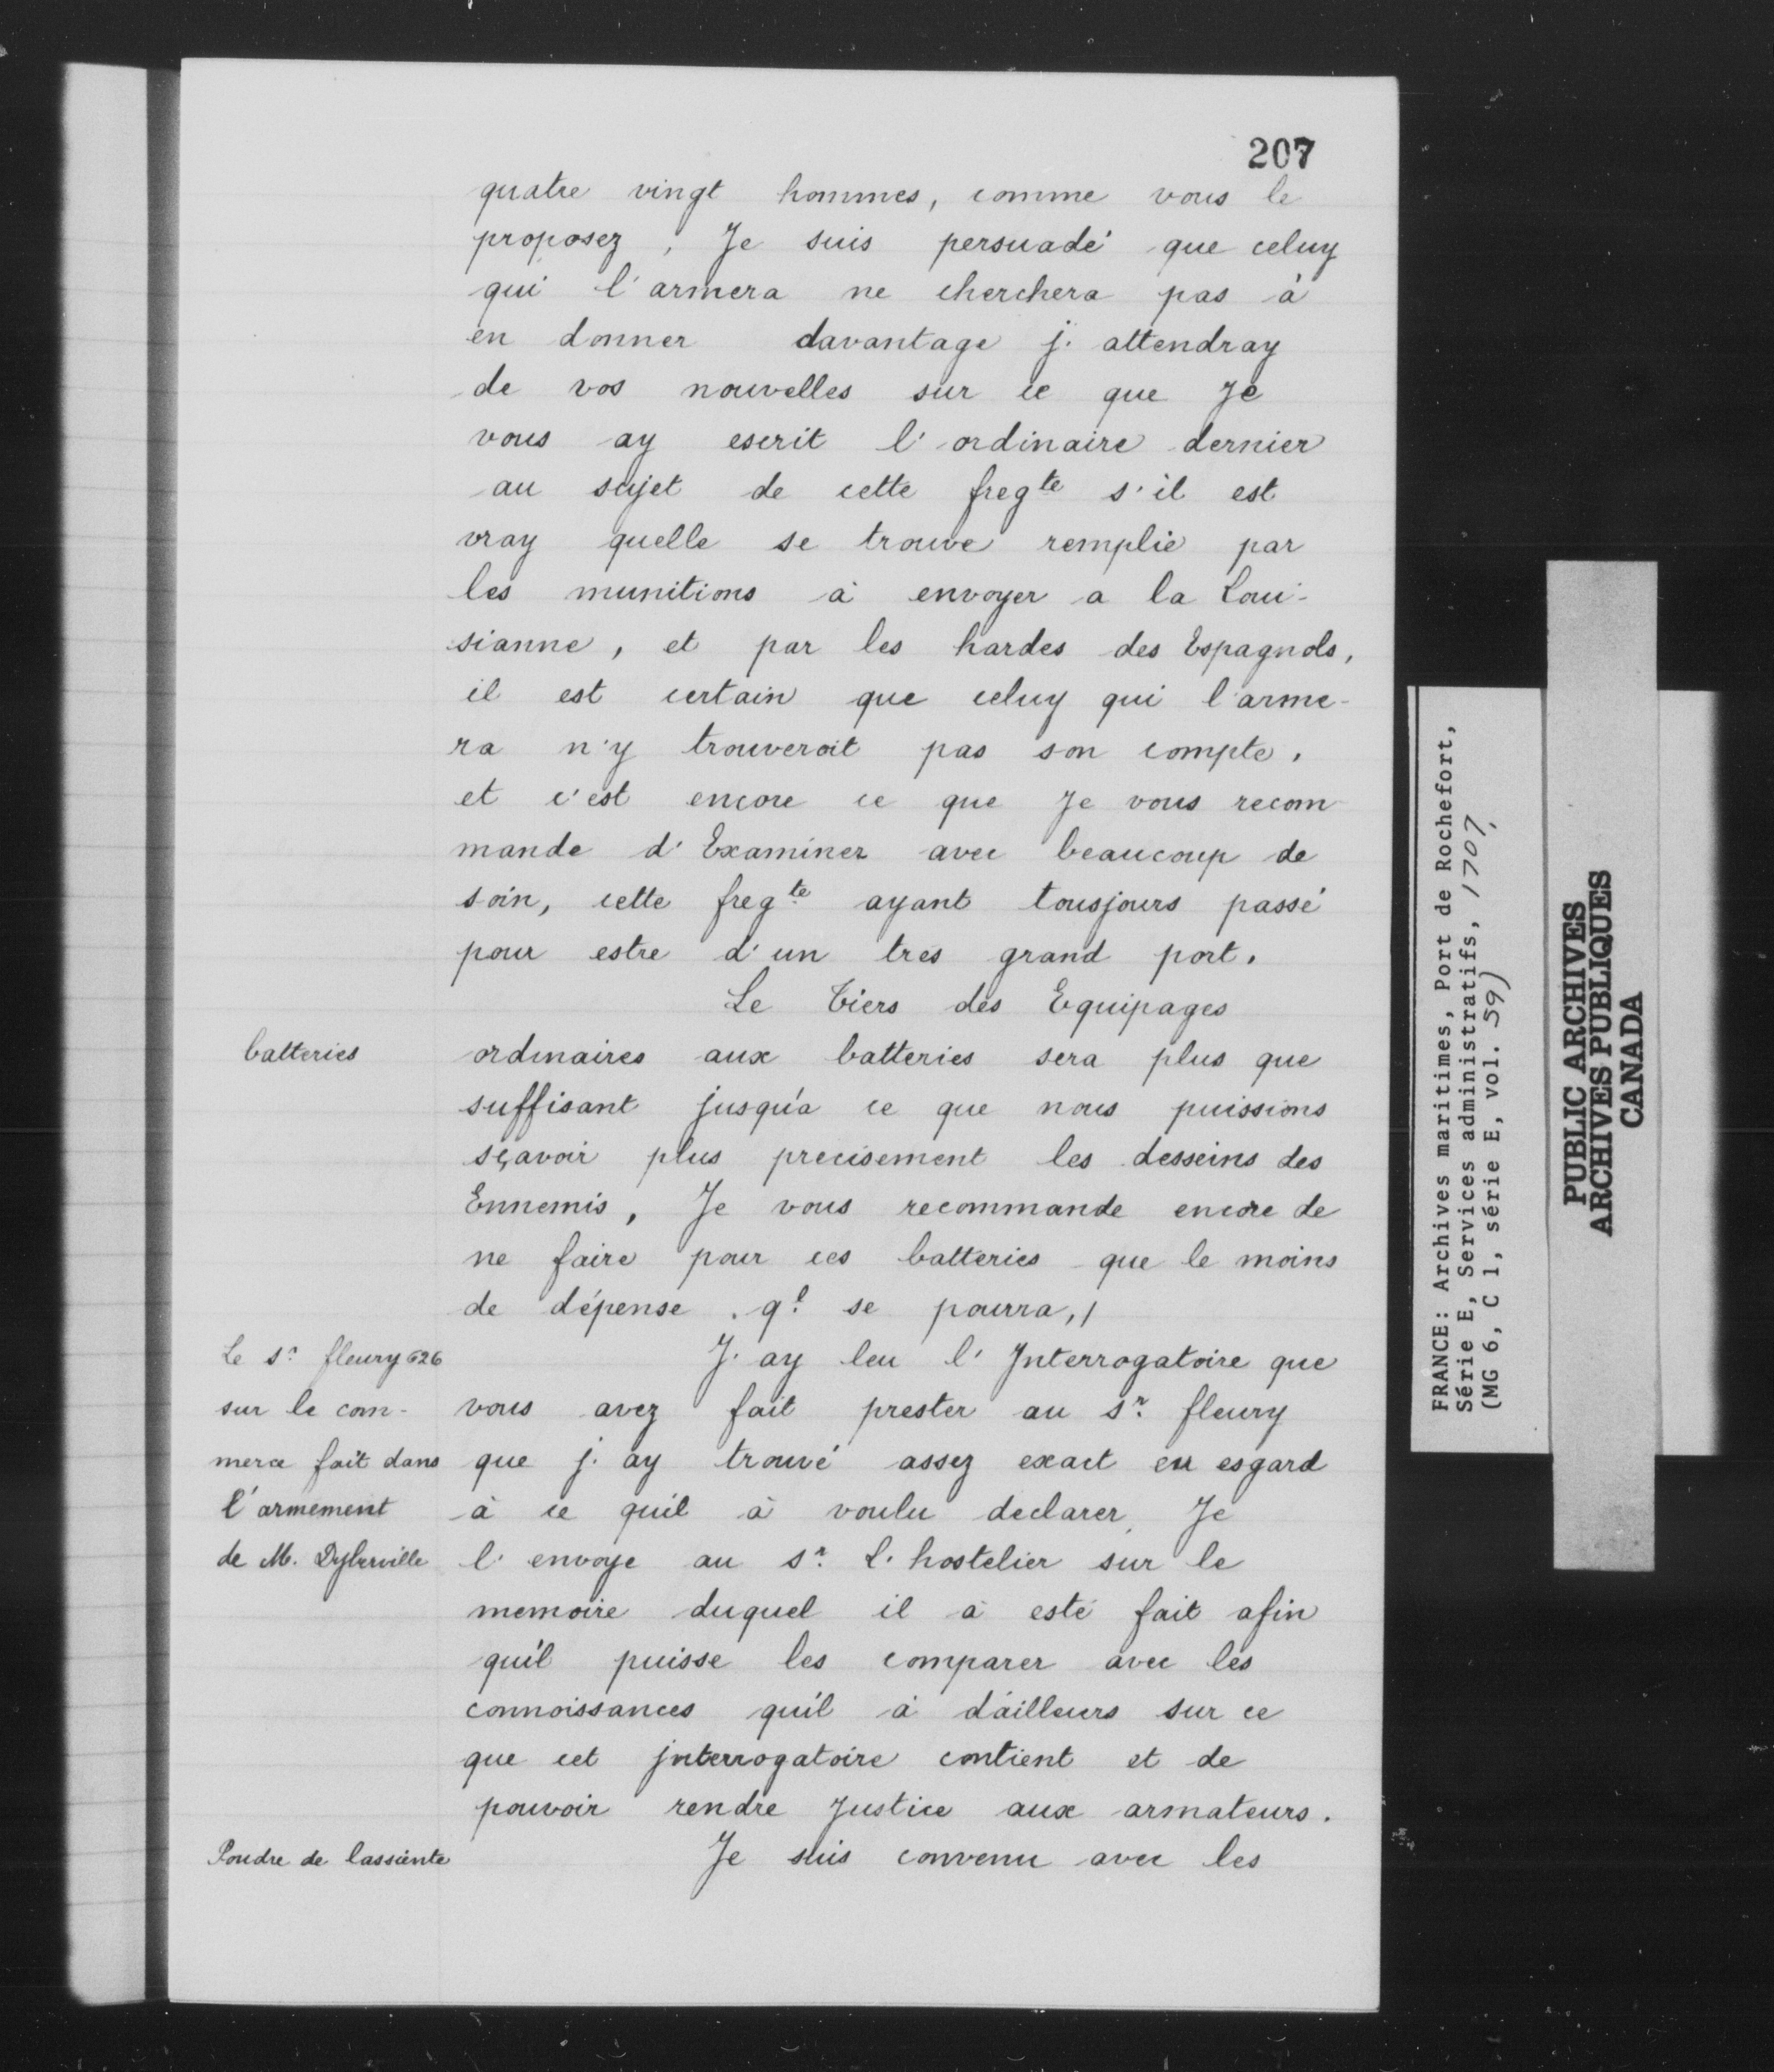 207
quatre vingt hommes, comme vous le
proposez, Je suis persuadé que celuy
qui l'armera ne cherchera pas à
en donner davantage j'attendray
de vos nouvelles sur ce que Je
vous ay escrit l'ordinaire dernier
au sujet de cette fregte s'il est
vray quelle se trouve remplie par
les munitions à envoyer a la Loui-
sianne, et par les hardes des Espagnols,
il est certain que celuy qui l'arme-
ra n'y trouveroit pas son compte,
et c'est encore ce que Je vous recom
mande d'Examiner avec beaucoup de
soin, cette fregte ayant tousjours passé
pour estre d'un tres grand port.
Le Tiers des Equipages
batteries
ordinaires aux batteries sera plus que
suffisant jusqu'a ce que nous puissions
sçavoir plus precisement les desseins des
Ennemis, Je vous recommande encore de
ne faire pour ces batteries que le moins
de dépense ql se pourra,/
Le Sr fleury 626
sur le com-
merce fait dans
l'armement
de M. Dyberville
J'ay leu l'Interrogatoire que
vous avez fait prester au Sr fleury
que j'ay trouvé assez exact eu esgard
à ce quil à voulu declarer, Je
l'envoye au Sr L'hostelier sur le
memoire duquel il à esté fait afin
qu'il puisse les comparer avec les
connoissances qu'il à d'ailleurs sur ce
que cet jnterrogatoire contient et de
pouvoir rendre Justice aux armateurs.
Poudre de lassiente
Je suis convenu avec les
FRANCE: Archives maritimes, Port de Rochefort,
Série E, Services administratifs, 1707,
(MG 6, C 1, série E, vol. 59)
PUBLIC ARCHIVES
ARCHIVES PUBLIQUES
CANADA